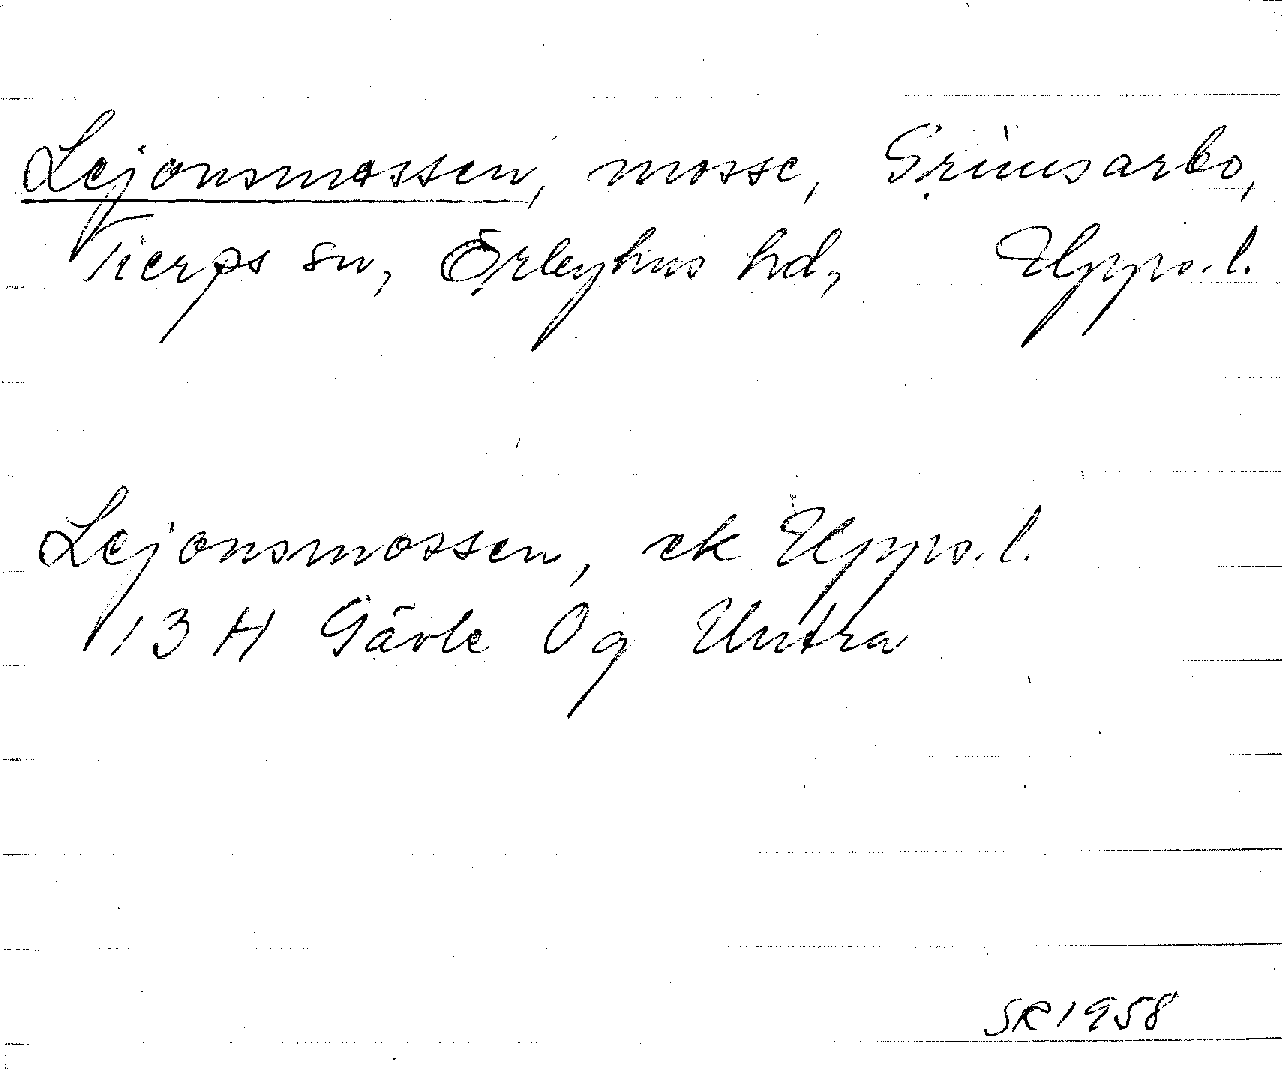 Lejonsmossen, mosse, Grimsarbo,
Tierps sn, Örbyhus hd, Upps. l.
Lejonsmossen, ek Upps. l.
13 H Gävle 0g Untra
SR 1958